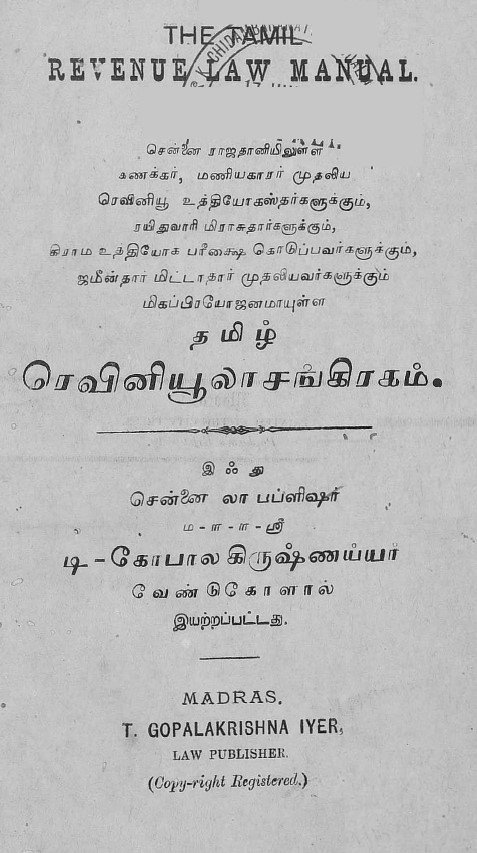 THE TAMIL
REVENUE LAW MANUAL.
சென்னை ராஜதானியிலுள்ள
கணக்கர், மணியகாரர் முதலிய
ரெவினியூ உத்தியோகஸ்தர்களுக்கும்,
ரயிதுவாரி மிராசுதார்களுக்கும்,
கிராம உத்தியோக பரீக்ஷை கொடுப்பவர்களுக்கும்,
ஜமீன்தார் மிட்டாதார் முதலியவர்களுக்கும்
மிகப்பிரயோஜனமாயுள்ள
தமிழ்
ரெவினியூலாசங்கிரகம்.
இஃது
சென்னை லா பப்ளிஷர்
ம-ள-ள-ஸ்ரீ
டி-கோபாலகிருஷ்ணய்யர்
வேண்டுகோளால்
இயற்றப்பட்டது.
MADRAS.
T. GOPALAKRISHNA IYER,
LAW PUBLISHER.
(Copy-right Registered.)